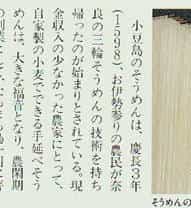 小豆島のそうめんは、慶長3年
(1598)、お伊勢参りの農民が奈
良の三輪そうめんの技術を持ち
帰ったのが始まりとされている。現
金収入の少なかった農家にとって、
自家製の小麦でできる手延べそう
めんは、大きな福音となり、農閑期
そうめんの